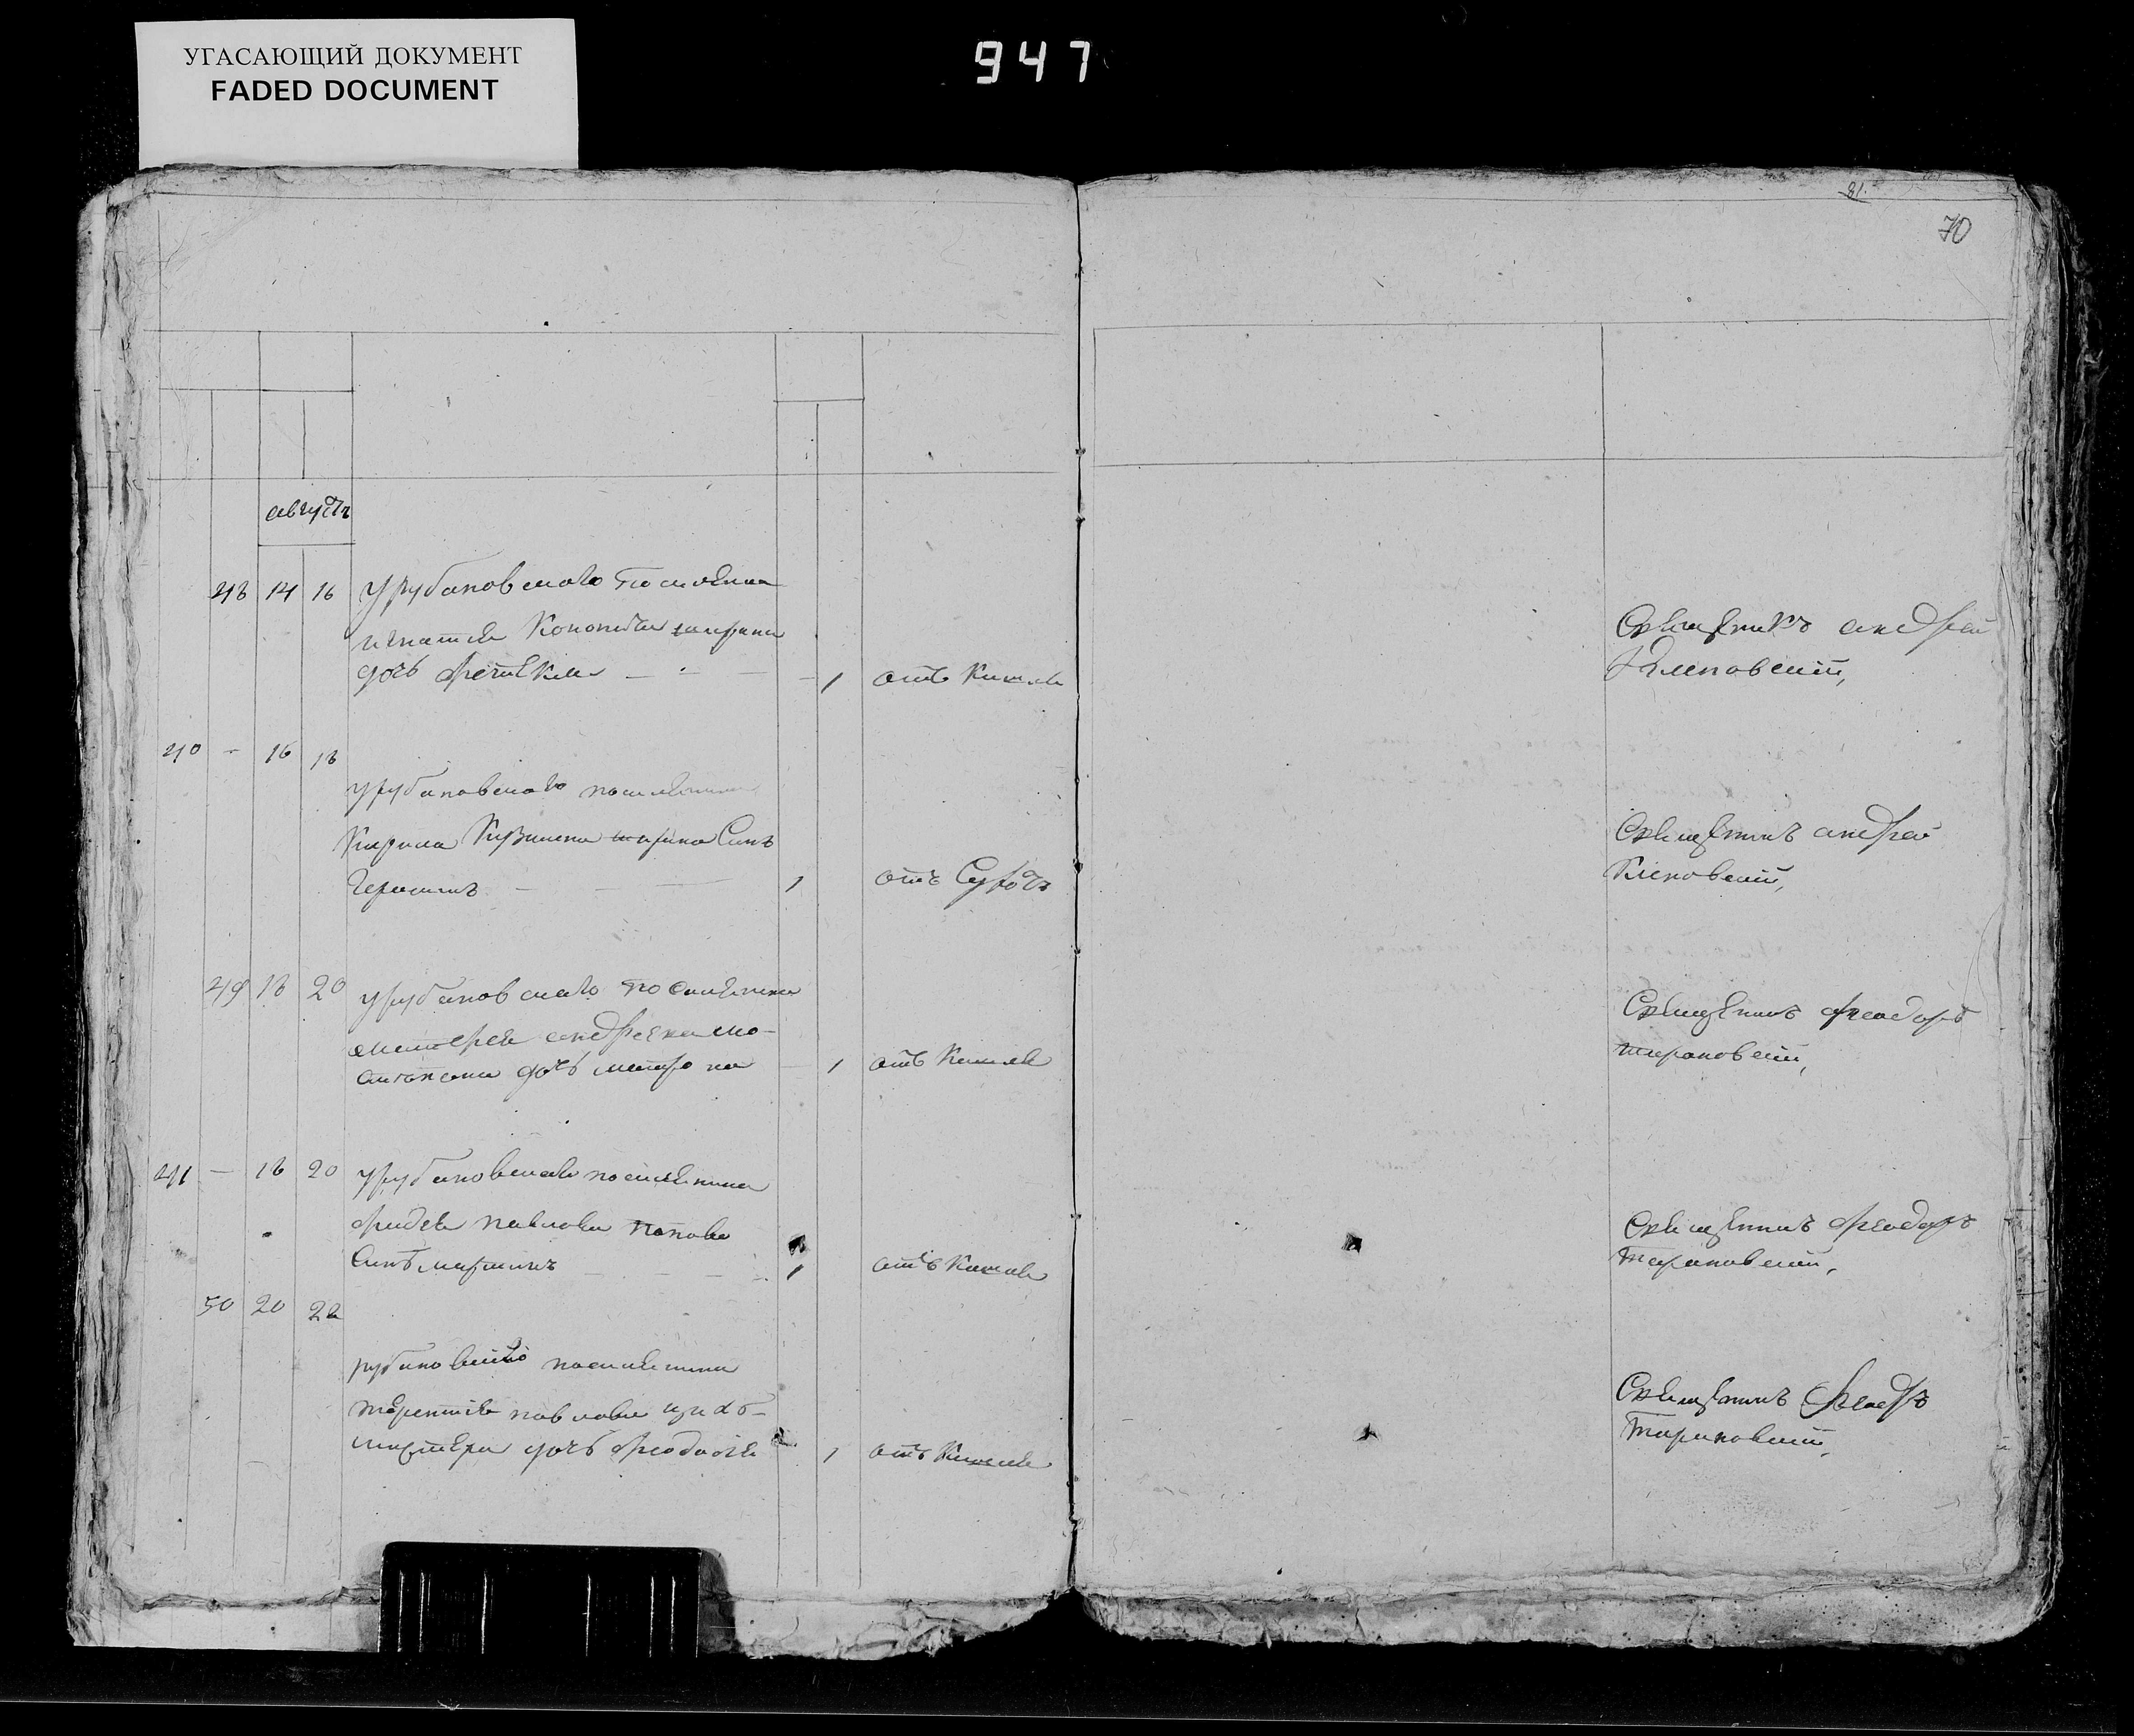 УГАСАЮЩИЙ ДОКУМЕНТ
FADED DOCUMENT
947
81.
70
августъ
48 14 16 У рубановскаго поселяна
игнатія
дочь — — — 1 отъ Кашля
Священикъ андрей
Клеповскій,
40 — 16 18
у рубановскаго поселянина
Кирила сынъ
Герасимъ — — 1 отъ
Священикъ андрей
Клеповскій,
49 18 20 у рубановскаго поселянина
андреяна
дочь матрона — 1 отъ Кашля
Священикъ феодоръ
тарановскій,
41 — 18 20 у рубановскаго поселянина
фадея павлова попова
сынъ мартинъ — — — 1 отъ Кашля
Священикъ феодоръ
тарановскій,
50 20 22
рубановскаго поселянина
терентія павлова
дочь феодосія 1 отъ Кашля
Священикъ феодръ
тарановскій,